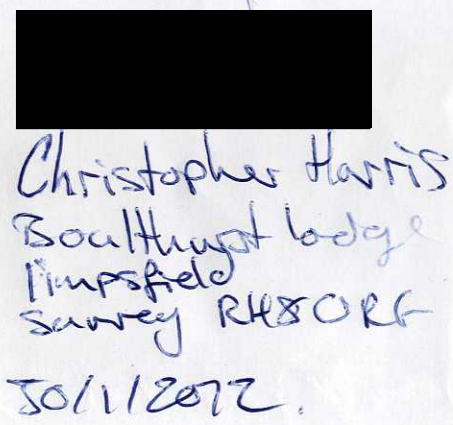 Christopher Harris
Boulthurst lodge
limpsfield
Surrey RH8 0RF
30/1/2012.